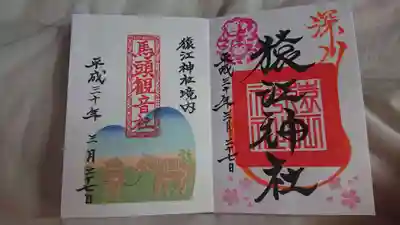 深川
猿江神社
平成三十年三月二十七日
猿江神社境内
馬頭観音社
平成三十年三月二十七日